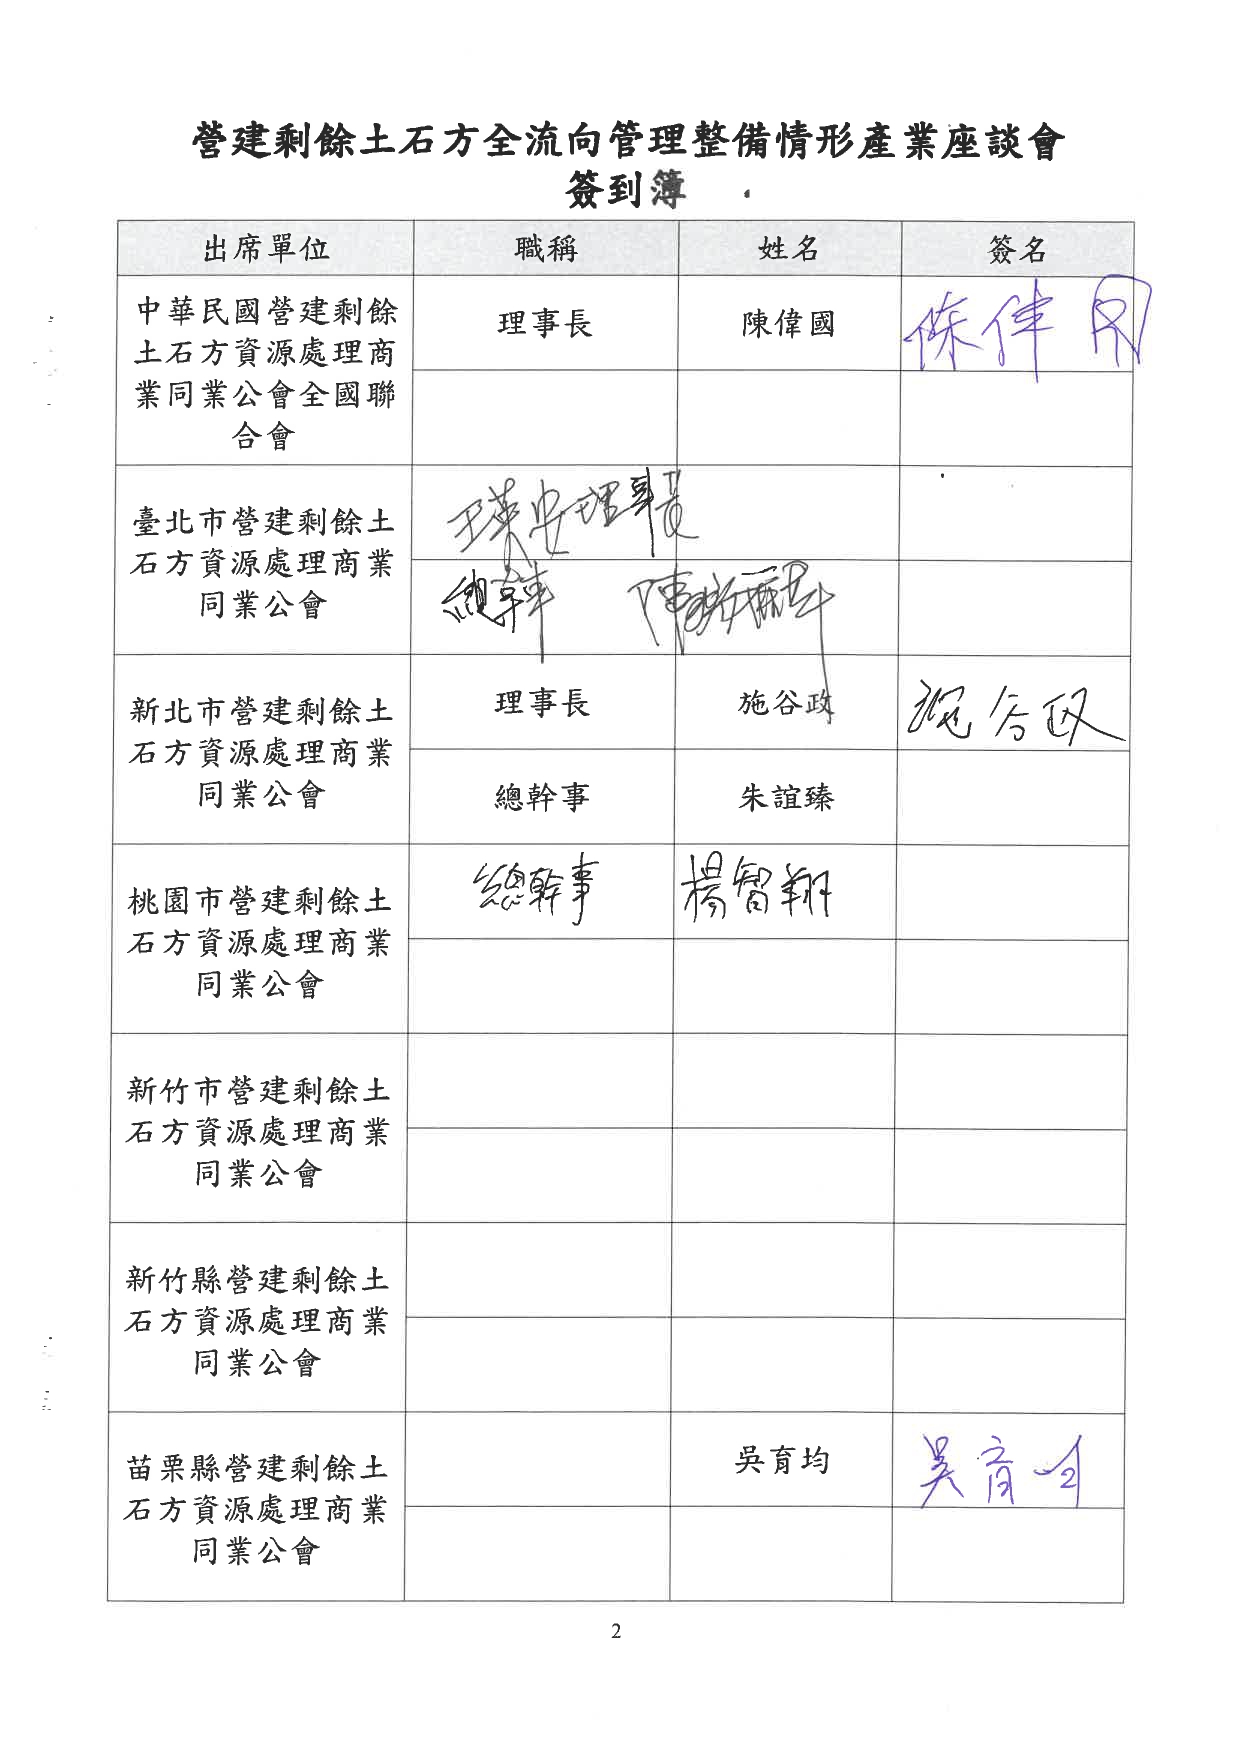 營建剩餘土石方全流向管理整備情形產業座談會
簽到簿
出席單位 職稱 姓名 簽名
中華民國營建剩餘
土石方資源處理商
業同業公會全國聯
合會
理事長 陳偉國 陳偉国
臺北市營建剩餘土
石方資源處理商業
同業公會
理事長
總幹事 陳
新北市營建剩餘土
石方資源處理商業
同業公會
理事長 施谷政 施谷政
總幹事 朱誼臻
桃園市營建剩餘土
石方資源處理商業
同業公會
總幹事 楊智翔
新竹市營建剩餘土
石方資源處理商業
同業公會
新竹縣營建剩餘土
石方資源處理商業
同業公會
苗栗縣營建剩餘土
石方資源處理商業
同業公會
吳育均 吳育均
2